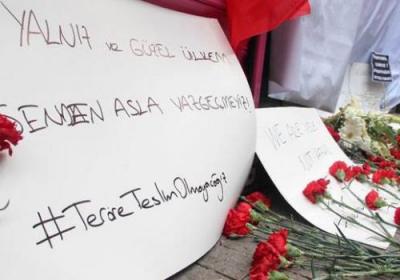 YALNIZ ve GÜZEL ÜLKEM
SENDEN ASLA VAZGEÇMEYİZ!
#TeröreTeslimOlmayacağız
WE ARE
NOT